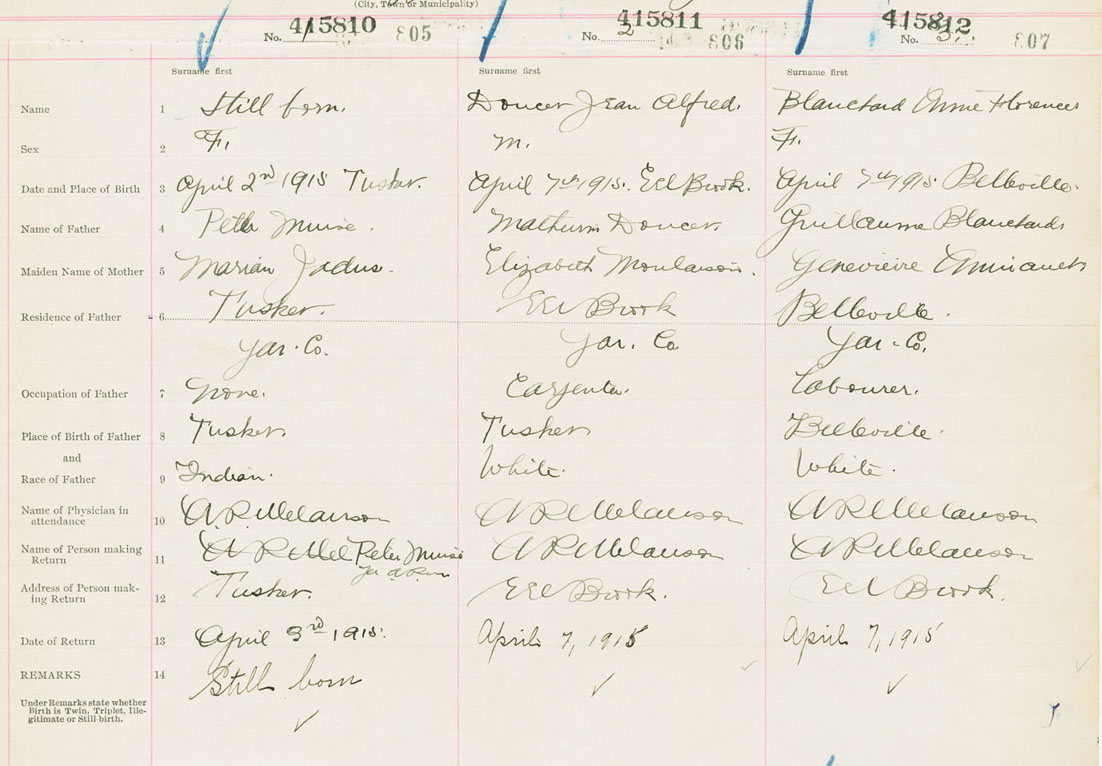 (City, Town or Municipality)
415810 415811 415812
No. 1 805 No. 2 806 No. 3. 807
Surname first Surname first Surname first
Name 1 Still born. Doucer Jean Alfred. Blanchard Anne Florence
Sex 2 F. M. F.
Date and Place of Birth 3 April 2nd 1915 Tusket. April 7th 1915. Eel Brook. April 7th 1915. Belleville.
Name of Father 4 Peter Muise. Mathurin Doucer. Guillaume Blanchard
Maiden Name of Mother 5 Marian Elizabeth Genevieve
Residence of Father 6 Tusket. Eel Brook Belleville.
Yar. Co. Yar. Co Yar. Co.
Occupation of Father 7 None. Carpenter. Labourer.
Place of Birth of Father 8 Tusket. Tusket Belleville.
and
Race of Father 9 Indian. White. White.
Name of Physician in
attendance 10 A R Melanson A R Melanson A R Melanson
Name of Person making
Return 11 A R Mel Peter Muise A R Melanson A R Melanson
Address of Person mak-
ing Return 12 Tusket. Eel Brook. Eel Brook.
Date of Return 13 April 3rd 1915. April 7, 1915 April 7, 1915
REMARKS 14 Still born
Under Remarks state whether
Birth is Twin, Triplet, Ille-
gitimate or Still-birth.